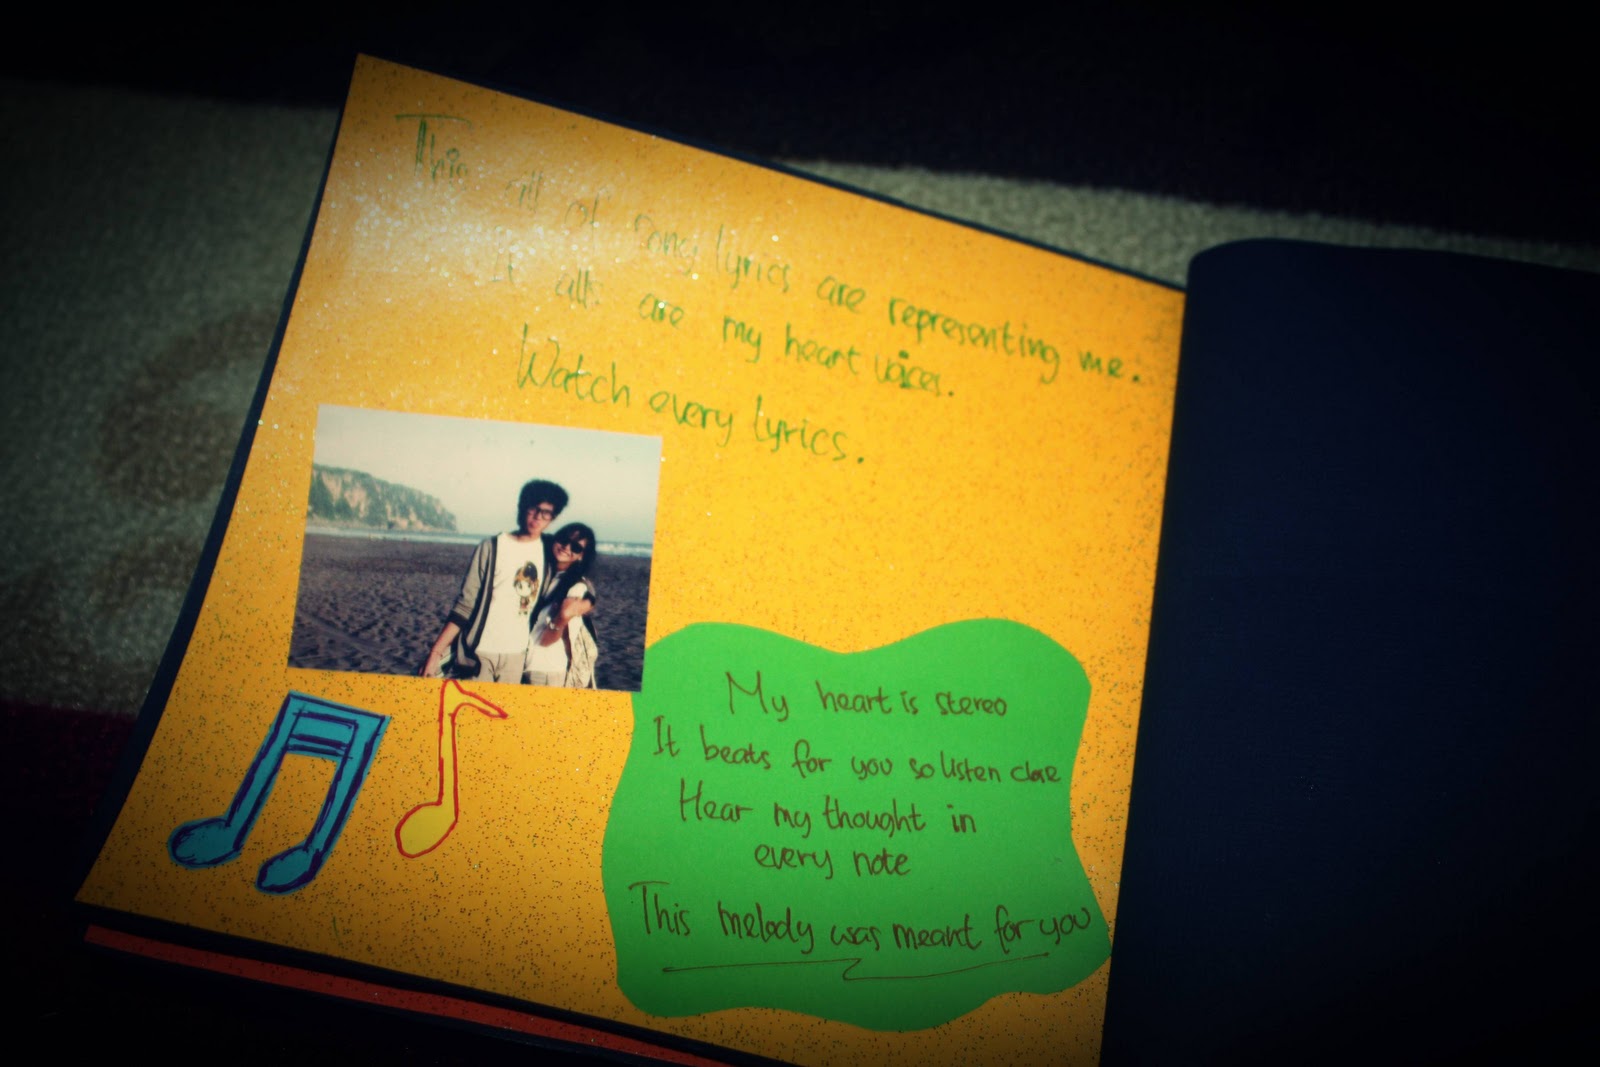 This all of song lyrics are representing me.
It alls are my heart voices.
Watch every lyrics.
My heart is stereo
It beats for you so listen close
Hear my thought in
every note
This melody was meant for you